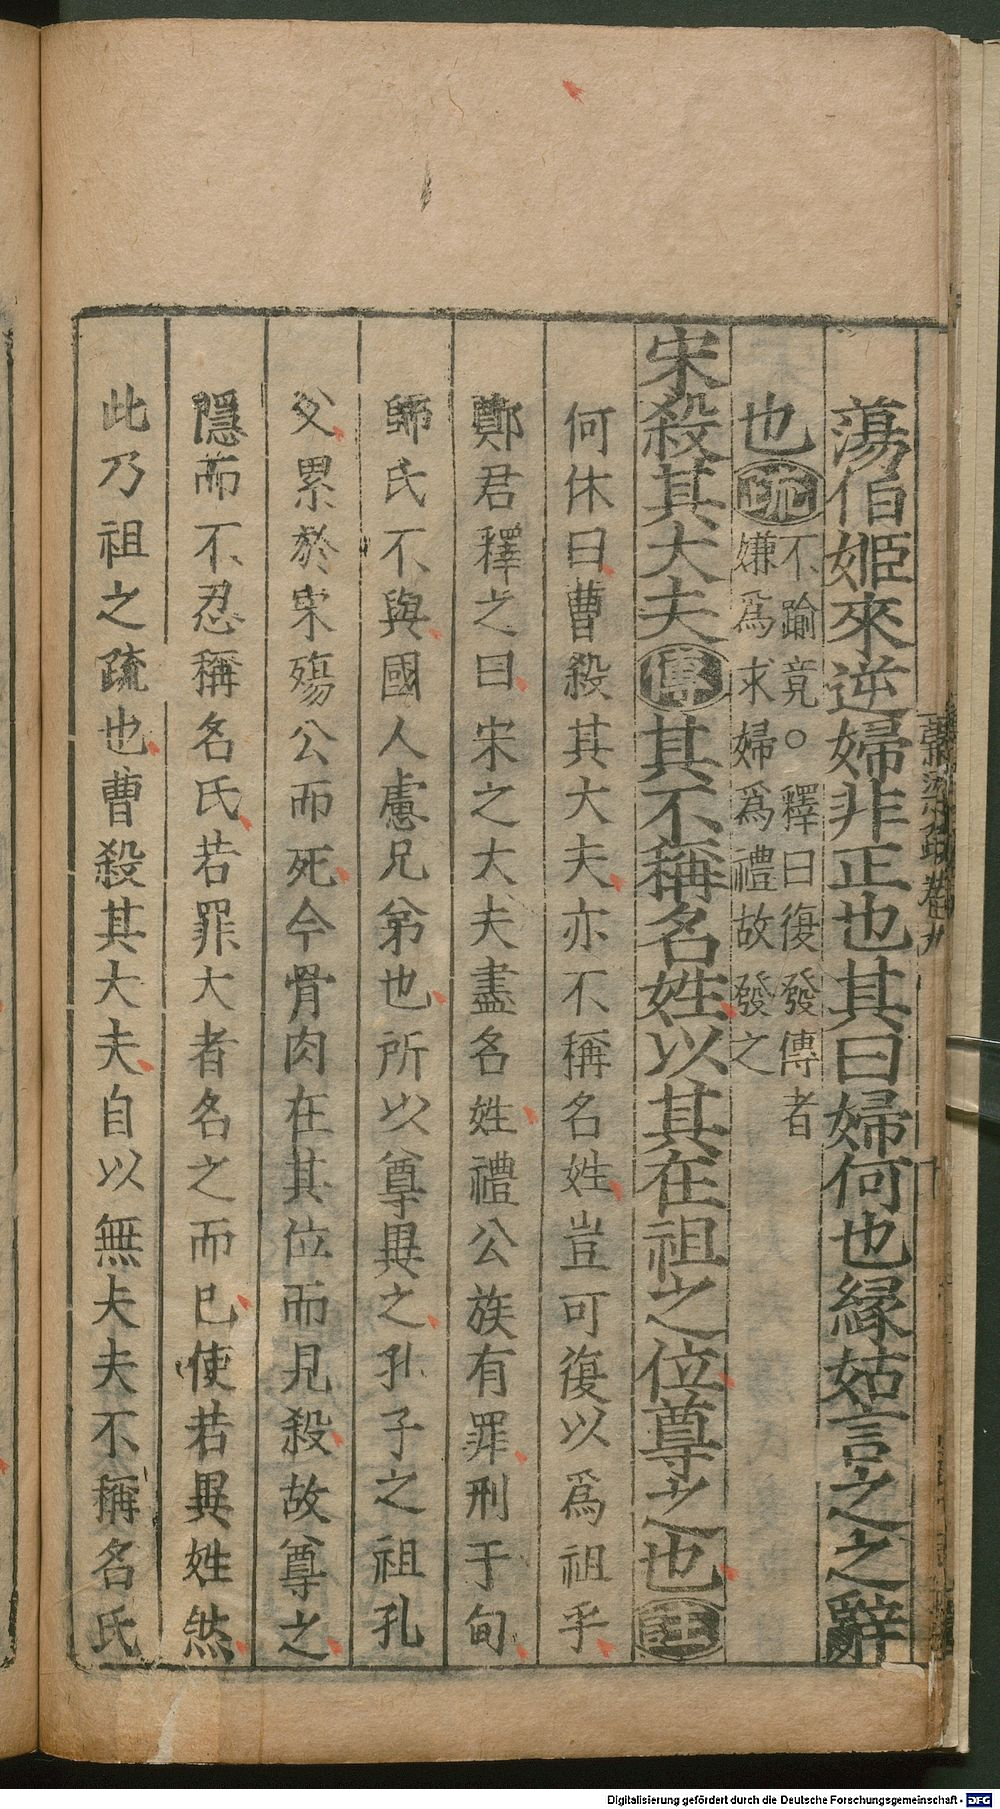 蕩伯姬來逆婦非正也其曰婦何也縁姑言之之辭
也疏不踰竟○釋曰復發傳者
嫌爲求婦爲禮故發之
宋殺其大夫傳其不稱名姓以其在祖之位尊之也註
何休曰曹殺其大夫亦不稱名姓豈可復以爲祖乎
鄭君釋之曰宋之大夫盡名姓禮公族有罪刑于甸
師氏不與國人慮兄弟也所以尊異之孔子之祖孔
父累於宋殤公而死今骨肉在其位而見殺故尊之
隱而不忍稱名氏若罪大者名之而已使若異姓然
此乃祖之疏也曹殺其大夫自以無大夫不稱名氏
Digitalisierung gefördert durch die Deutsche Forschungsgemeinschaft - DFG